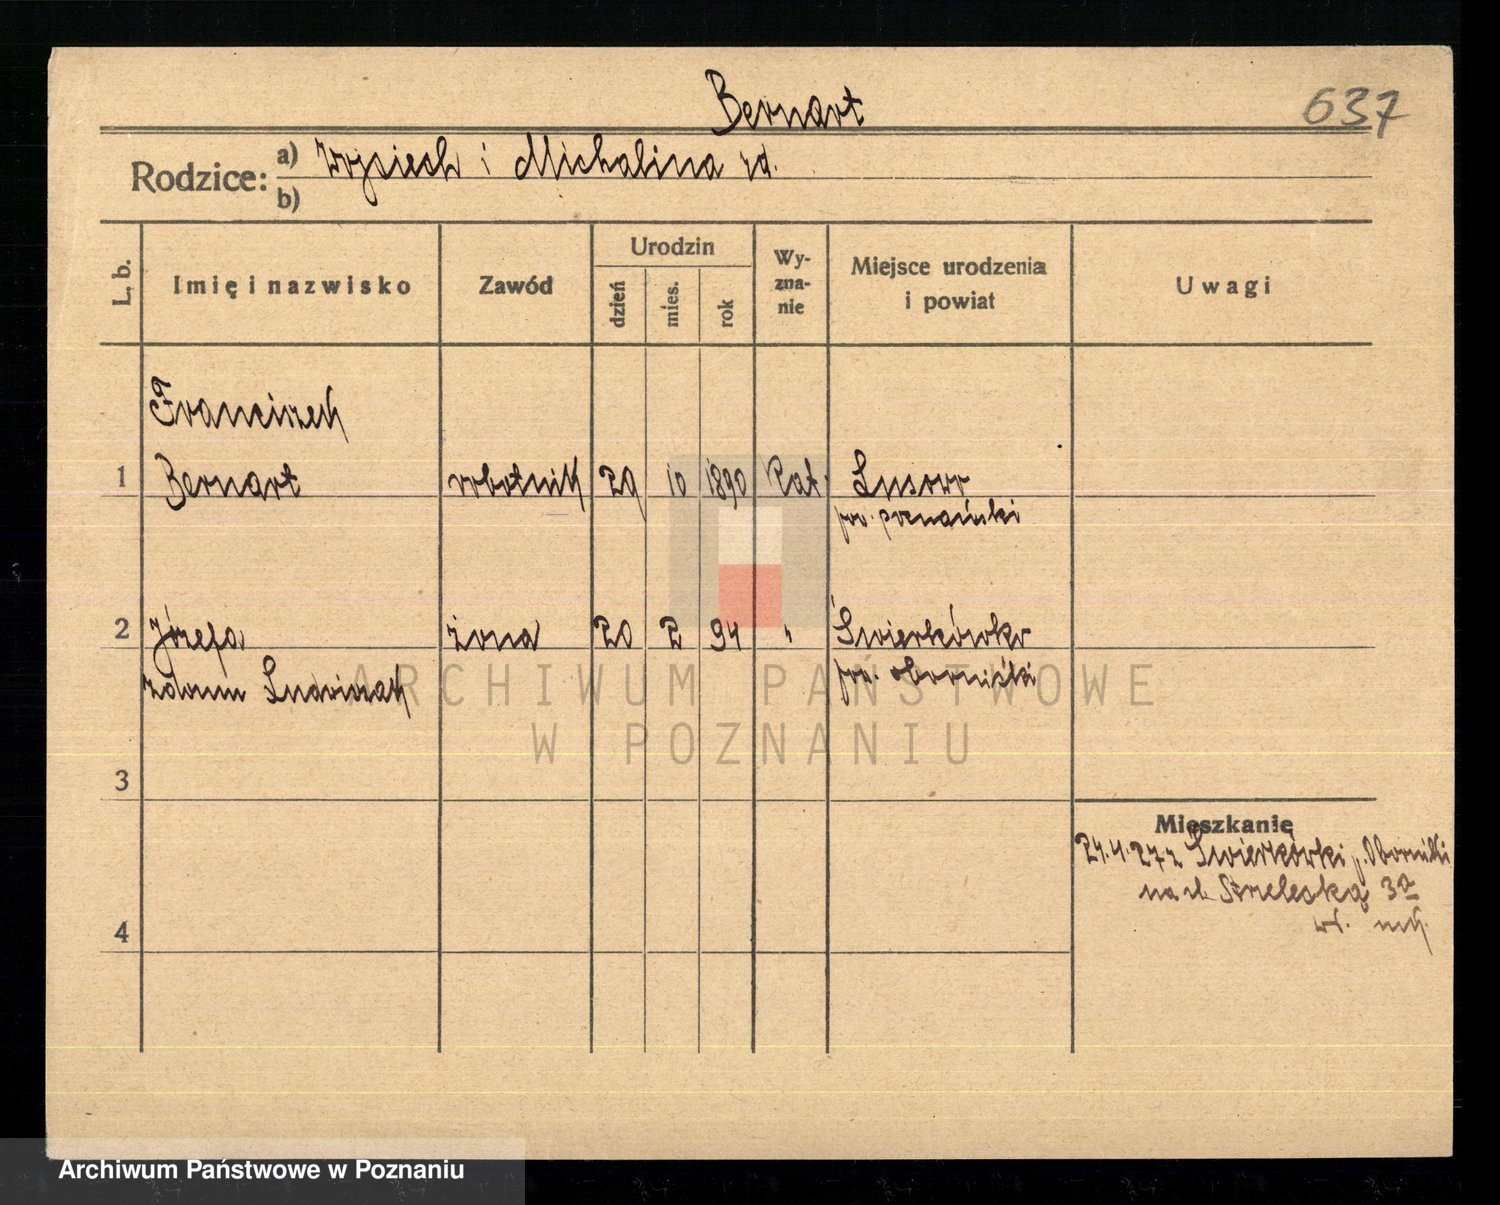 Bernart
637
Rodzice: a) Wojciech i Michalina
b)
L. b.
Imię i nazwisko
Zawód
Urodzin
dzień
mies.
rok
Wy-
zna-
nie
Miejsce urodzenia
i powiat
Uwagi
Franciszek
1 Bernart robotnik 29 10 1890 kat. Lusowo
pow. poznański
2 Józefa żona 20 2 94 " Świerkówko
pow. obornicki
zdomu Ludwiczak
3
Mieszkanie
24.4.27 z Świerkówki p. Oborniki
na ul. Strzelecką 32
4
ARCHIWUM PAŃSTWOWE
W POZNANIU
Archiwum Państwowe w Poznaniu